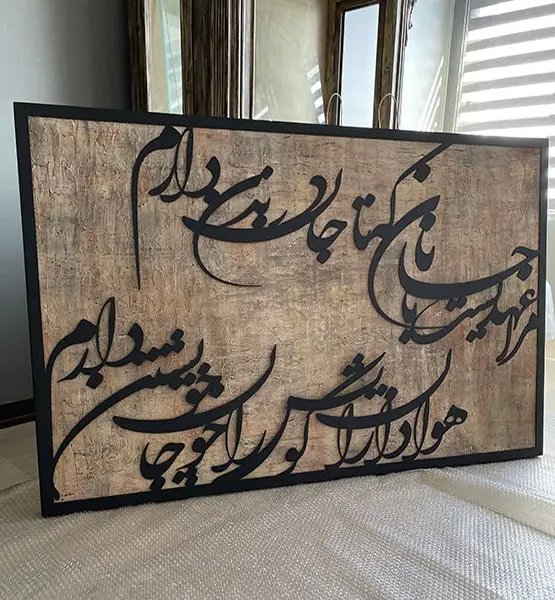 مرا عهدیست با جانان که تا جان در بدن دارم
هواداران کویش را چو جان خویشتن دارم